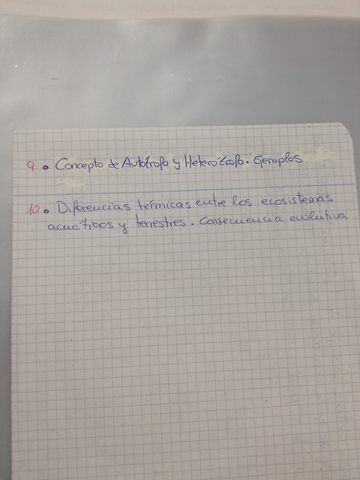 9 • Concepto de Autótrofo y Heterótrofo. Ejemplos
10 • Diferencias térmicas entre los ecosistemas
acuáticos y terrestres. Consecuencia evolutiva